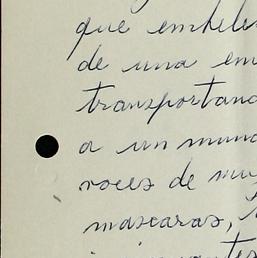 que embele
de una em
transportand
a un mund
voces de mu
mascaras,